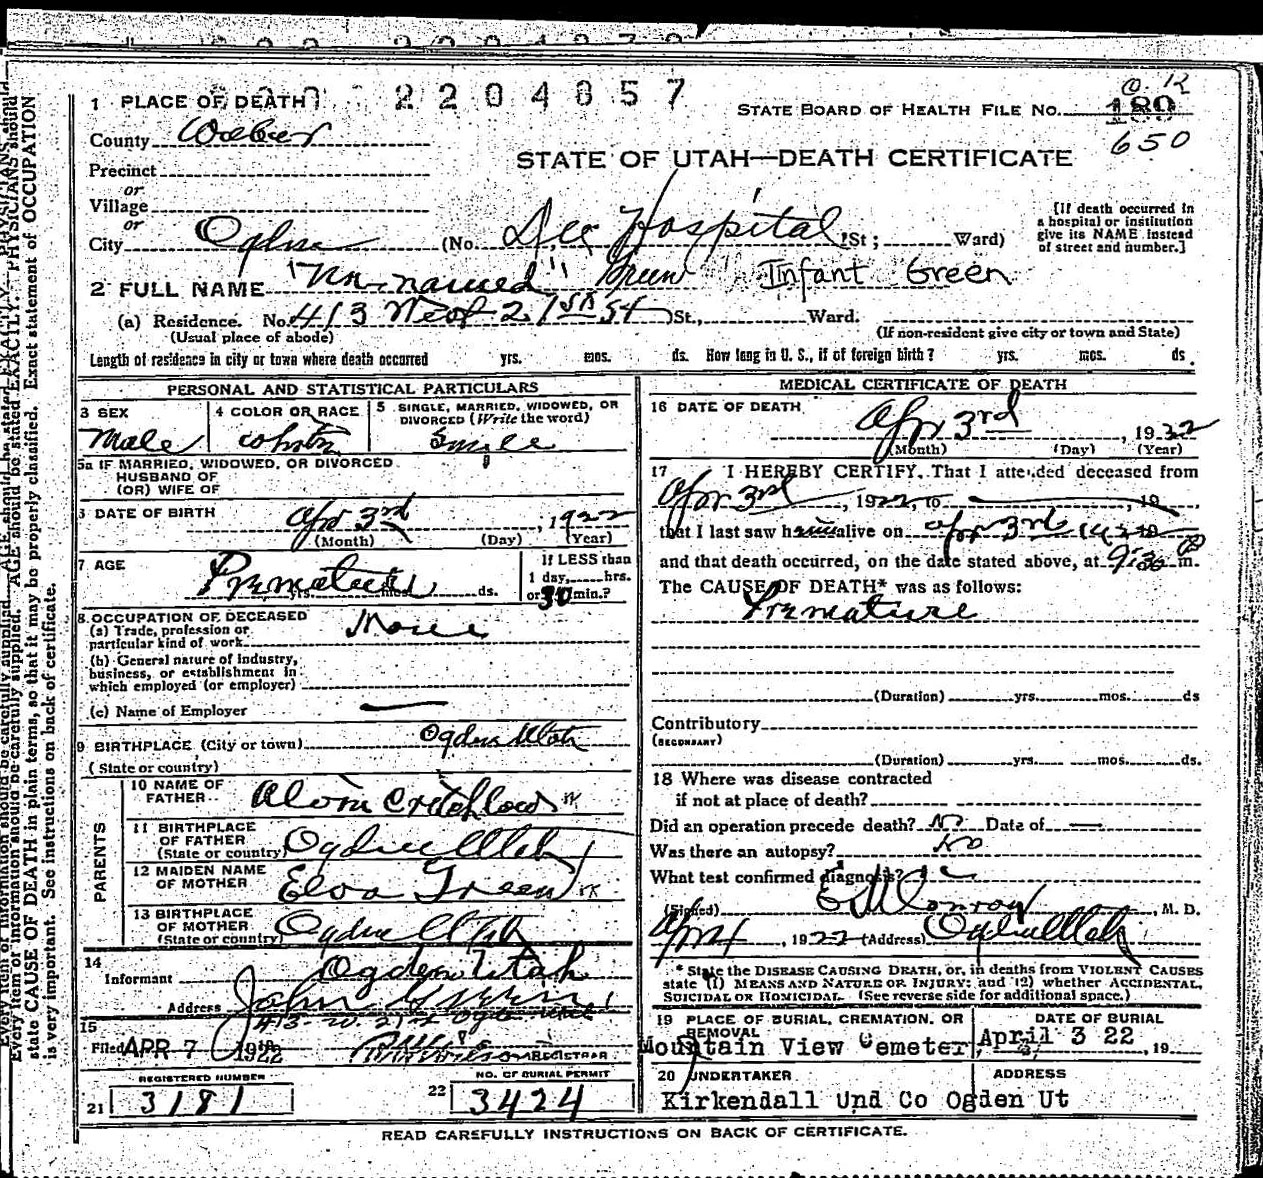 2204857
1 PLACE OF DEATH
STATE BOARD OF HEALTH FILE No. 189
O.K
650
County Weber
STATE OF UTAH—DEATH CERTIFICATE
Precinct
or
Village
or
City Ogden (No. Dee Hospital St; Ward)
[If death occurred in
a hospital or institution
give its NAME instead
of street and number.]
2 FULL NAME "Un-named" Green Infant Green
(a) Residence. No. 413 W of 21st St St., Ward.
(Usual place of abode) (If non-resident give city or town and State)
Length of residence in city or town where death occurred yrs. mos. ds. How long in U. S., if of foreign birth? yrs. mos. ds.
PERSONAL AND STATISTICAL PARTICULARS
3 SEX
Male
4 COLOR OR RACE
White
5 SINGLE, MARRIED, WIDOWED, OR
DIVORCED (Write the word)
Single
5a IF MARRIED, WIDOWED, OR DIVORCED
HUSBAND OF
(OR) WIFE OF
6 DATE OF BIRTH Apr 3rd, 1922
(Month) (Day) (Year)
7 AGE Premature ds.
If LESS than
1 day, hrs.
or 30 min.?
8 OCCUPATION OF DECEASED
(a) Trade, profession or
particular kind of work None
(b) General nature of industry,
business, or establishment in
which employed (or employer)
(c) Name of Employer
9 BIRTHPLACE (City or town) Ogden Utah
(State or country)
PARENTS
10 NAME OF
FATHER Alvin Critchlow
11 BIRTHPLACE
OF FATHER
(State or country) Ogden Utah
12 MAIDEN NAME
OF MOTHER Elva Green
13 BIRTHPLACE
OF MOTHER
(State or country) Ogden Utah
14
Informant Ogden Utah
Address John Green
413 W. 21st Ogden Utah
15
Filed APR 7 1922 REGISTRAR
REGISTERED NUMBER
21 3181
NO. OF BURIAL PERMIT
22 3424
MEDICAL CERTIFICATE OF DEATH
16 DATE OF DEATH
Apr 3rd, 1922
(Month) (Day) (Year)
17 I HEREBY CERTIFY, That I attended deceased from
Apr 3rd, 1922, to , 19
that I last saw him alive on Apr 3rd 1922
and that death occurred, on the date stated above, at 9:30 P m.
The CAUSE OF DEATH* was as follows:
Premature
(Duration) yrs. mos. ds
Contributory
(SECONDARY)
(Duration) yrs. mos. ds.
18 Where was disease contracted
if not at place of death?
Did an operation precede death? No Date of
Was there an autopsy? No
What test confirmed diagnosis?
(Signed) E M Conroy, M. D.
Apr 4, 1922 (Address) Ogden Utah
* State the DISEASE CAUSING DEATH, or, in deaths from VIOLENT CAUSES
state (1) MEANS AND NATURE OF INJURY; and (2) whether ACCIDENTAL,
SUICIDAL OR HOMICIDAL. (See reverse side for additional space.)
19 PLACE OF BURIAL, CREMATION, OR
REMOVAL
Mountain View Cemeter
DATE OF BURIAL
April 3 22, 19
20 UNDERTAKER ADDRESS
Kirkendall Und Co Ogden Ut
READ CAREFULLY INSTRUCTIONS ON BACK OF CERTIFICATE.
Every item of information should be carefully supplied. AGE should be stated EXACTLY. PHYSICIANS should
state CAUSE OF DEATH in plain terms, so that it may be properly classified. Exact statement of OCCUPATION
is very important. See instructions on back of certificate.